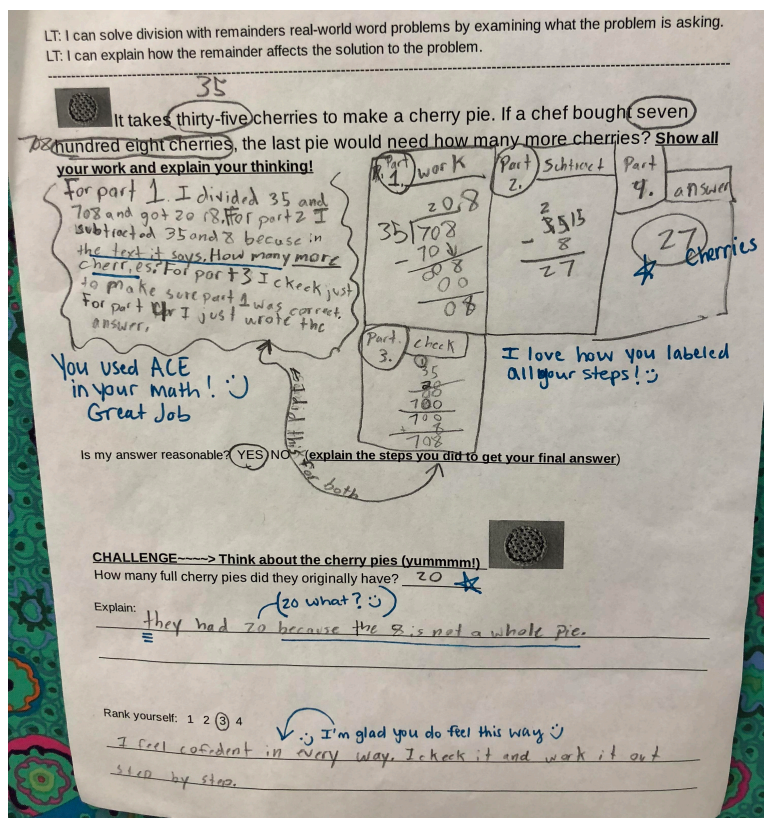 LT: I can solve division with remainders real-world word problems by examining what the problem is asking.
LT: I can explain how the remainder affects the solution to the problem.
35
It takes thirty-five cherries to make a cherry pie. If a chef bought seven
708 hundred eight cherries, the last pie would need how many more cherries? Show all
your work and explain your thinking!
For part 1. I divided 35 and
708 and got 20 r8, For part 2 I
subtracted 35 and 8 becuse in
the text it says. How many more
cherries. For part 3 I ckeck just
to make sure part 1 was correct.
For part 4 I just wrote the
answer,
Part 1. work
20r8
35 708
- 70
008
00
08
Part 2. Subtract
2
3515
- 8
27
Part 4. answer
27
Cherries
Part 3. check
35
20
00
700
700
+ 8
708
You used ACE
in your math! :)
Great Job
I love how you labeled
all your steps! :)
I did this for both
Is my answer reasonable? YES NO (explain the steps you did to get your final answer)
CHALLENGE~~~~> Think about the cherry pies (yummmm!)
How many full cherry pies did they originally have? 20
(20 what? :)
Explain: they had 20 because the 8 is not a whole pie.
Rank yourself: 1 2 3 4
:) I'm glad you do feel this way :)
I feel cofedent in every way. I ckeck it and work it out
step by step.